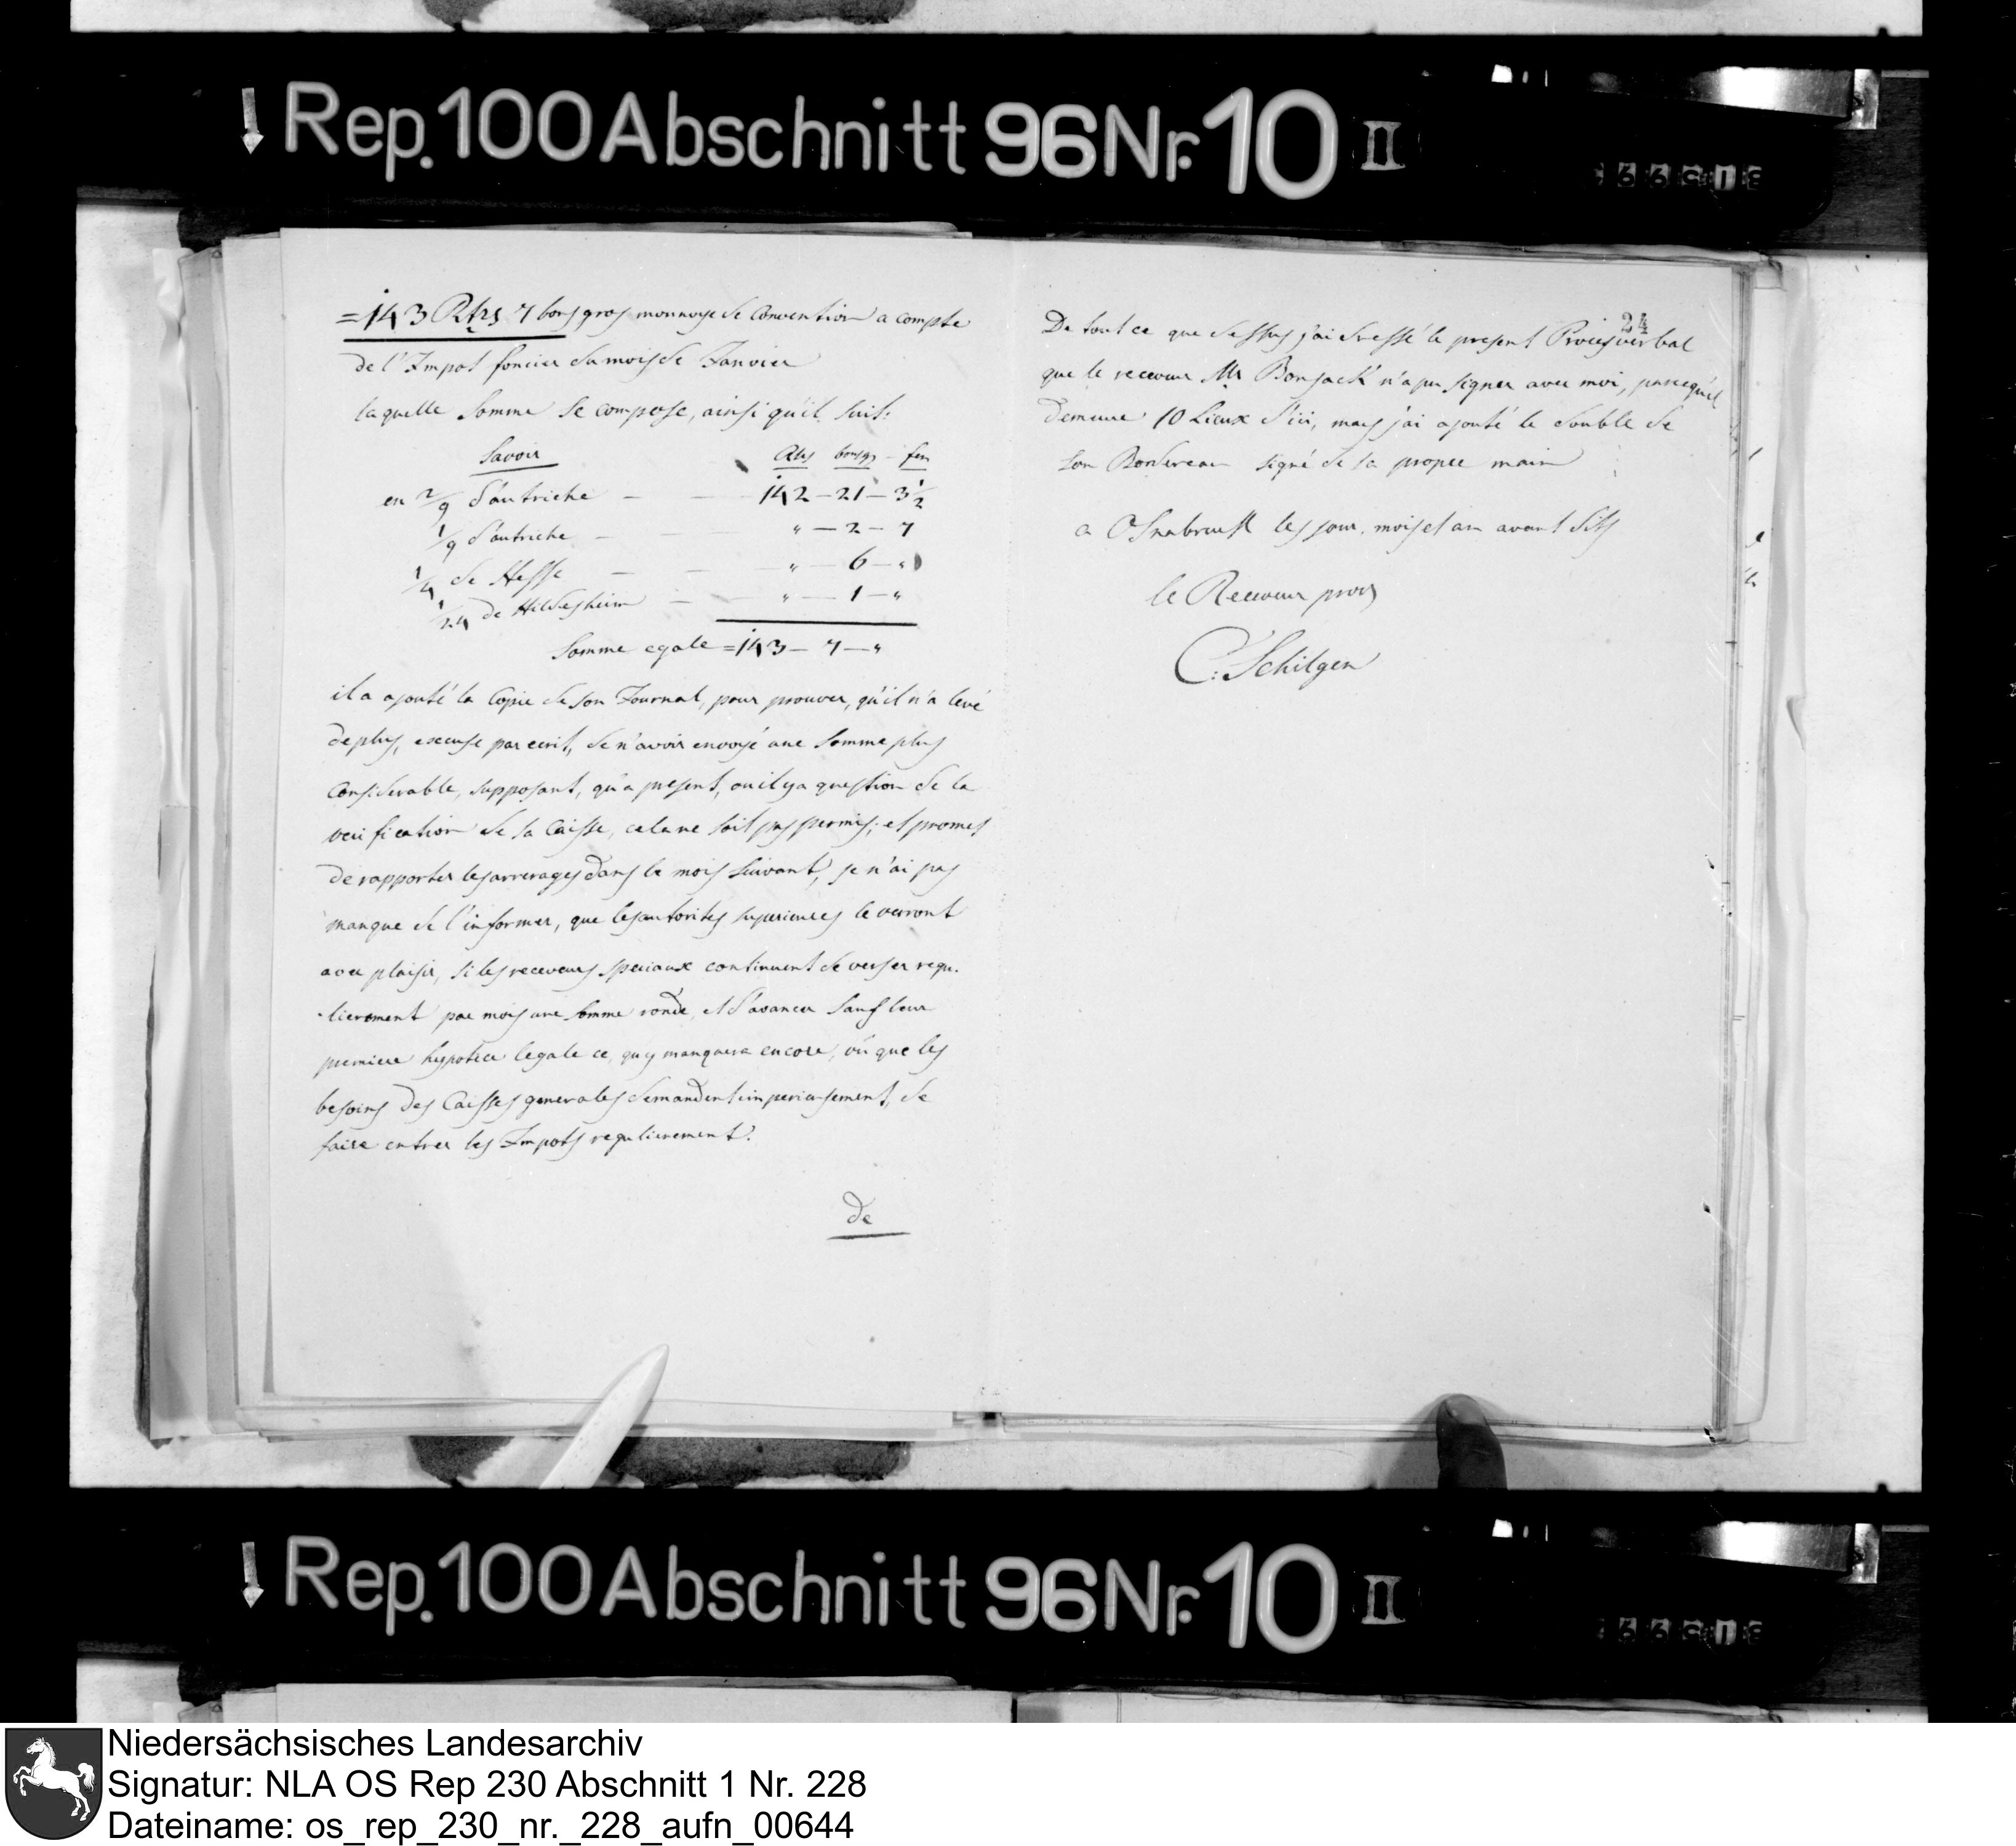 Rep. 100 Abschnitt 96 Nr. 10 II
= 143 Rthrs 7 bons gros monnoye de Convention a compte
de l'Impot foncier du mois de Janvier
laquelle Somme se compose, ainsi qu'il suit:
Savoir Rths bonsgs – fen
en 2/9 d'autriche — — 142 – 21 – 3 1/2
1/9 d'autriche — — " – 2 – 7
1/4 de Hesse — — " – 6 – "
1/24 de Hildesheim — " – 1 – "
Somme egale = 143 – 7 – "
il a ajouté la Copie de son Journal, pour prouver, qu'il n'a levé
de plus, excuse par ecrit, de n'avoir envoyé une Somme plus
Considerable, supposant, qu'a present, ou il y a question de la
verification de sa Caisse, cela ne soit pas permis; et promet
de rapporter les arrerages dans le mois suivant, je n'ai pas
manque de l'informer, que les autorites superieures le verront
avec plaisir, si les receveurs speciaux continuent de verser regu-
-lierement par mois une somme ronde, et d'avancer sauf leur
premiere hypotece legale ce, qu'y manquera encore, vû que les
besoins des Caisses generales demandent imperieusement, de
faire entrer les Impots regulierement.
de
24
De tout ce que dessus j'ai dressé le present Procès verbal
que le receveur Mr Bonsack n'a pu signer avec moi, parcequ'il
demeure 10 Lieux d'ici, mais j'ai ajouté le double de
son Bordereau signé de sa propre main
a Osnabruck les jour, mois et an avant dits
le Receveur prov
C. Schilgen
Rep. 100 Abschnitt 96 Nr. 10 II
Niedersächsisches Landesarchiv
Signatur: NLA OS Rep 230 Abschnitt 1 Nr. 228
Dateiname: os_rep_230_nr._228_aufn_00644